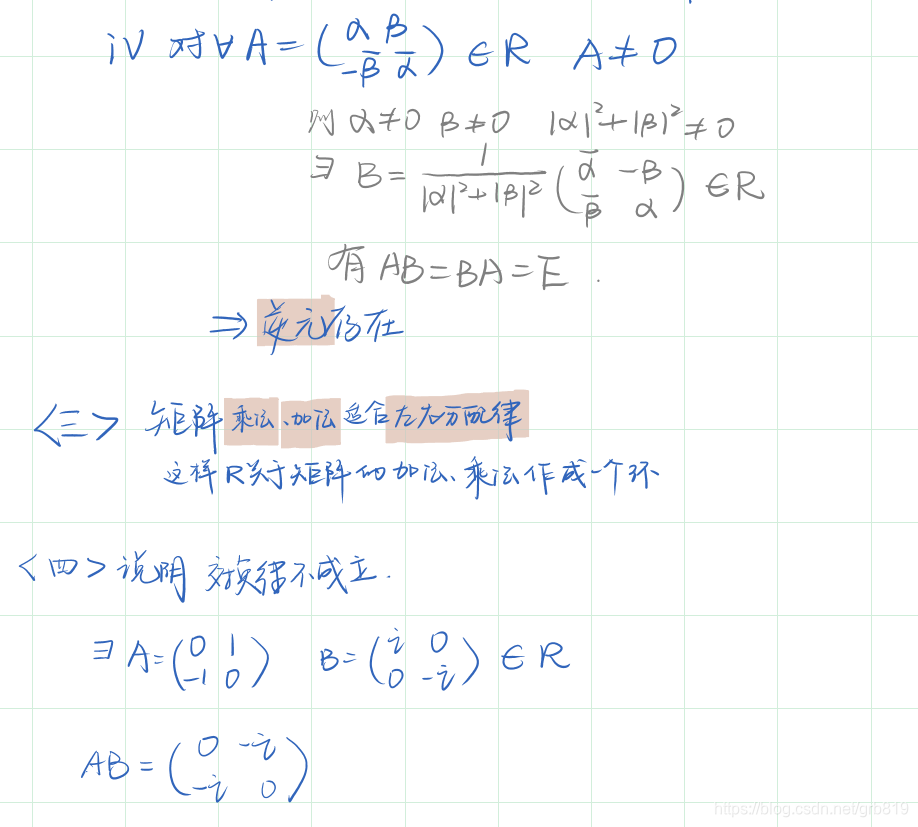 iV 对∀A = (α β -β̄ ᾱ) ∈ R A ≠ 0
则 α≠0 β≠0 |α|²+|β|²≠0
∃ B = 1/(|α|²+|β|²) (ᾱ -β β̄ α) ∈ R
有 AB = BA = E .
⇒ 逆元存在
<三> 矩阵乘法、加法适合左右分配律
这样R关于矩阵的加法、乘法作成一个环
<四> 说明 交换律不成立.
∃ A = (0 1 -1 0) B = (i 0 0 -i) ∈ R
AB = (0 -i -i 0)
https://blog.csdn.net/grb819